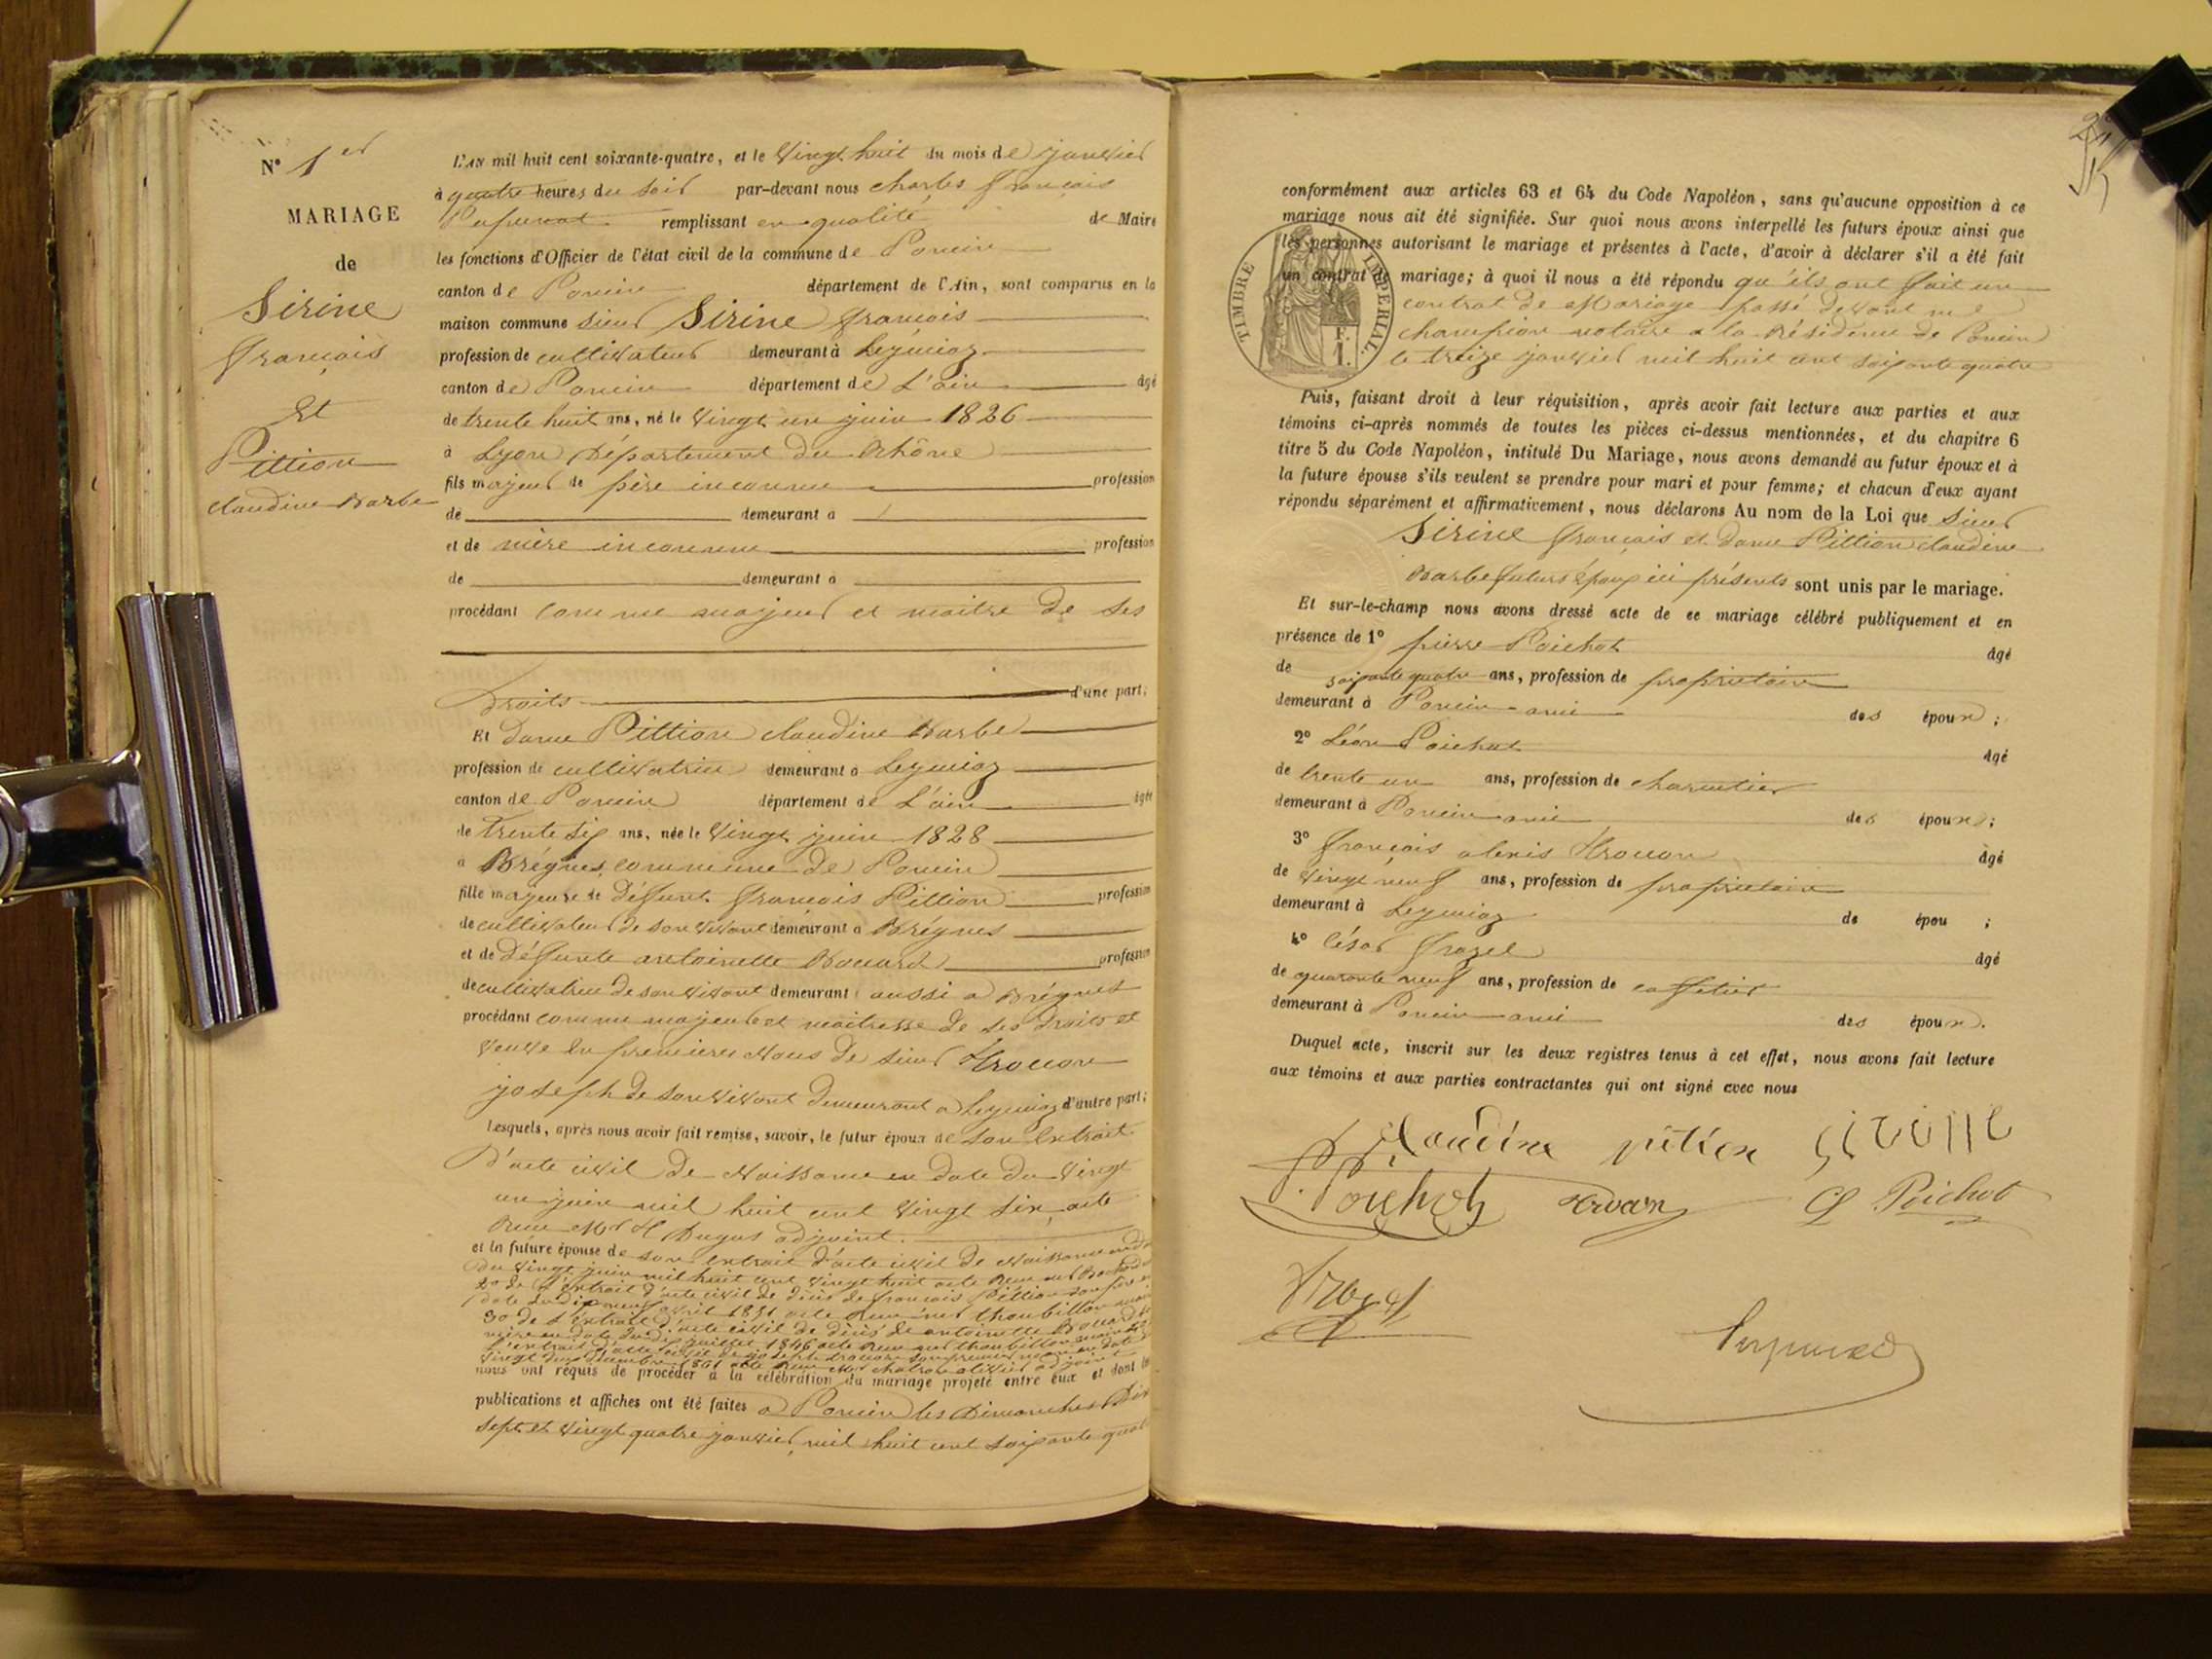 N° 1er
MARIAGE
de
Sirine
françois
Et
Pittion
claudine Barbe
L'AN mil huit cent soixante-quatre, et le Vingt huit du mois de janvier
à quatre heures du soir par-devant nous charles françois
remplissant en qualité de Maire
les fonctions d'Officier de l'état civil de la commune de Poncin
canton de Poncin département de l'Ain, sont comparus en la
maison commune sieur Sirine françois
profession de cultivateur demeurant à Leymiaz
canton de Poncin département de L'ain âgé
de trente huit ans, né le Vingt un juin 1826
à Lyon Département du Rhône
fils majeur de père inconnu profession
de demeurant a
et de mère inconnue profession
de demeurant a
procédant comme majeur et maitre de ses
Droits d'une part;
Et dame Pittion claudine Barbe
profession de cultivatrice demeurant a Leymiaz
canton de Poncin département de L'ain âgée
de Trente six ans, née le Vingt juin 1828
à Brégnes commune de Poncin
fille majeure de Défunt françois Pittion profession
de cultivateur de son vivant demeurant a Brégnes
et de Défunte antoinette Bouard profession
de cultivatrice de son vivant demeurant aussi a Brégnes
procédant comme majeure et maitresse de ses Droits et
veuve en premieres Noces de sieur Trouon
joseph de son vivant demeurant a Leymiaz d'autre part;
Lesquels, après nous avoir fait remise, savoir, le futur époux de son extrait
D'acte civil De Naissance en date du Vingt
un juin mil huit cent Vingt six, acte
Reçu Mr H Dugas adjoint.
et la future épouse de son extrait d'acte civil de Naissance en date
du vingt juin mil huit cent vingt huit acte Reçu mr
2° de l'extrait d'acte civil de décès de françois Pittion son père en
date du dix neuf avril 1831 acte Reçu mr thoubillon
3° de l'extrait d'acte civil de décès de antoinette Bouard sa
mère en date du dix juillet 1846 acte Reçu mr thoubillon maire 4°
l'extrait d'acte civil de joseph trouon son premier mari en date du
vingt deux décembre 1861 acte Reçu Mr adjoint
nous ont requis de procéder à la célébration du mariage projeté entre eux et dont les
publications et affiches ont été faites a Poncin les Dimanches Dix
sept et Vingt quatre janvier mil huit cent soixante quatre
conformément aux articles 63 et 64 du Code Napoléon, sans qu'aucune opposition à ce
mariage nous ait été signifiée. Sur quoi nous avons interpellé les futurs époux ainsi que
les personnes autorisant le mariage et présentes à l'acte, d'avoir à déclarer s'il a été fait
un contrat de mariage; à quoi il nous a été répondu qu'ils ont fait un
contrat de Mariage passé devant me
champion notaire a la Résidence de Poncin
le treize janvier mil huit cent soixante quatre
TIMBRE IMPERIAL.
F.
1.
Puis, faisant droit à leur réquisition, après avoir fait lecture aux parties et aux
témoins ci-après nommés de toutes les pièces ci-dessus mentionnées, et du chapitre 6
titre 5 du Code Napoléon, intitulé Du Mariage, nous avons demandé au futur époux et à
la future épouse s'ils veulent se prendre pour mari et pour femme; et chacun d'eux ayant
répondu séparément et affirmativement, nous déclarons Au nom de la Loi que sieur
Sirine françois et dame Pittion claudine
Barbe futurs époux ici présents sont unis par le mariage.
Et sur-le-champ nous avons dressé acte de ce mariage célébré publiquement et en
présence de 1° pierre Poichot âgé
de soixante quatre ans, profession de proprietaire
demeurant à Poncin ami des époux;
2° Léon Poichot âgé
de trente un ans, profession de charcutier
demeurant à Poncin ami des époux;
3° françois alexis Trouon âgé
de vingt neuf ans, profession de proprietaire
demeurant à Leymiaz de épou ;
4° César frazel âgé
de quarante neuf ans, profession de cafetier
demeurant à Poncin ami des époux.
Duquel acte, inscrit sur les deux registres tenus à cet effet, nous avons fait lecture
aux témoins et aux parties contractantes qui ont signé avec nous
claudine pition Sirine
P. Poichot L Poichot